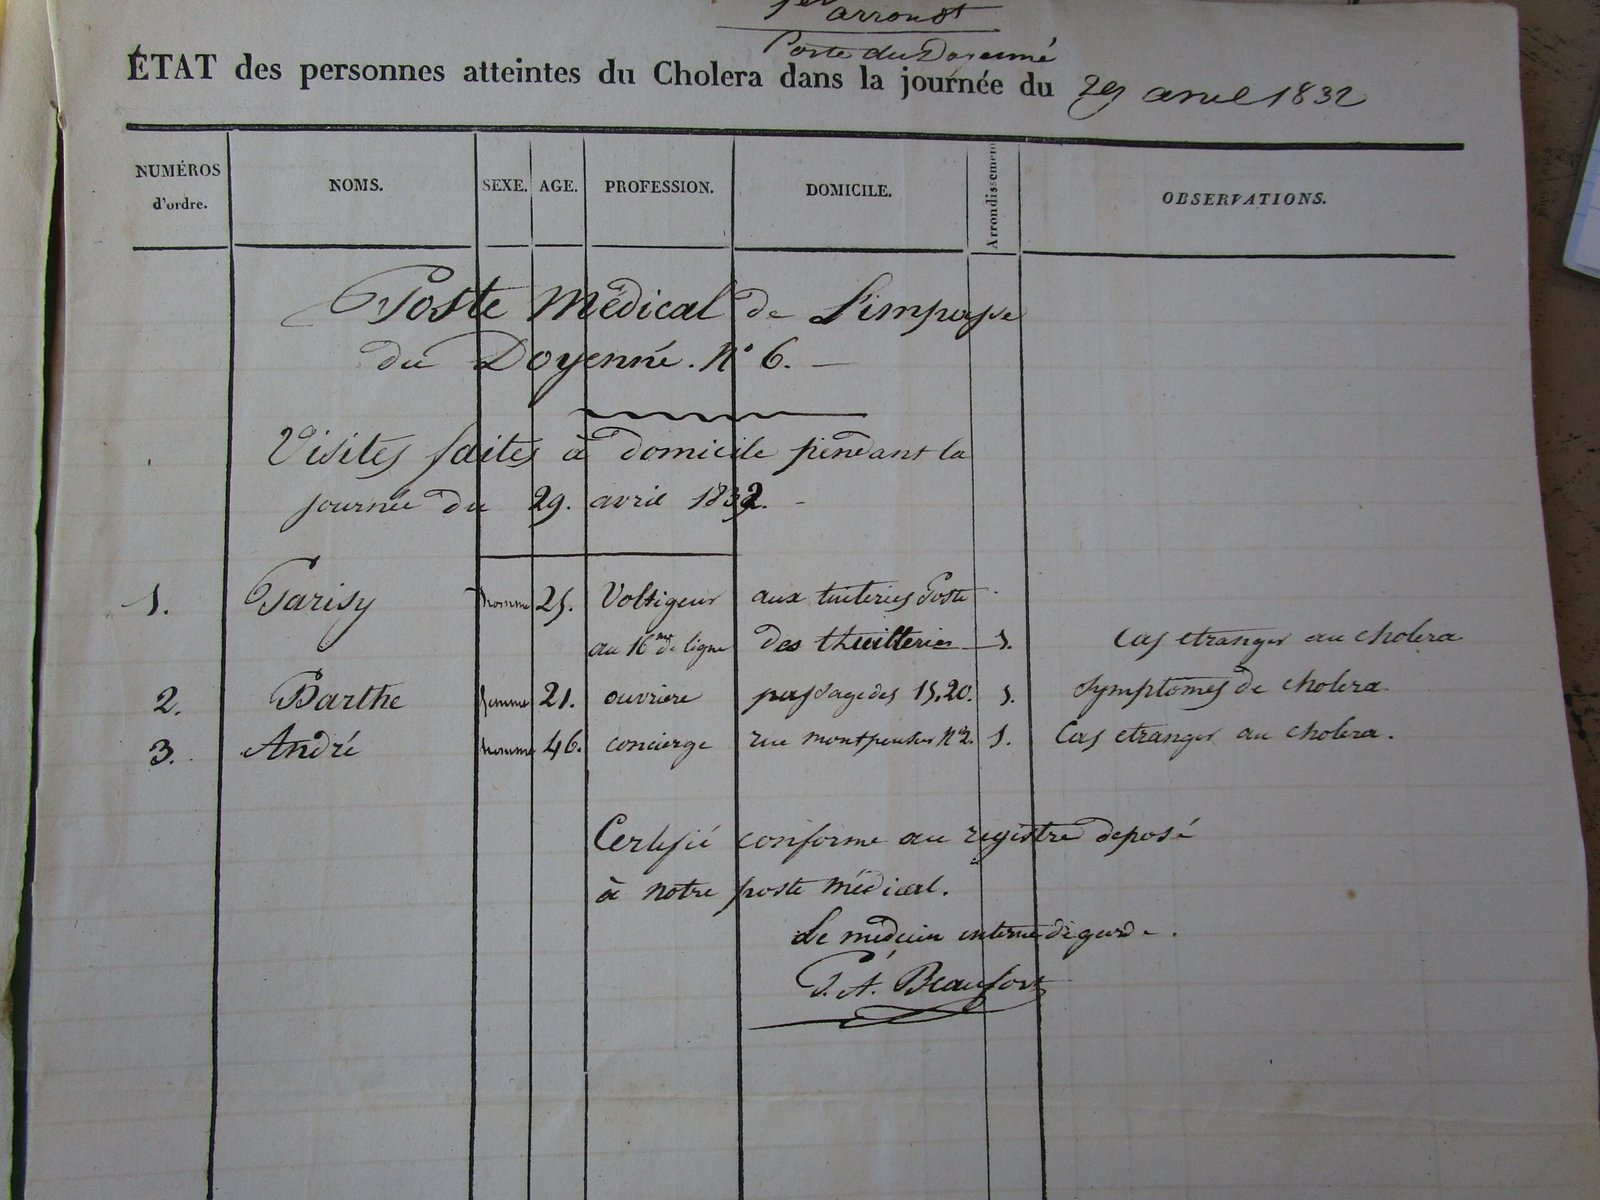 1er arrondt
Poste du Doyenné
ÉTAT des personnes atteintes du Cholera dans la journée du 29 avril 1832
NUMÉROS d'ordre. NOMS. SEXE. AGE. PROFESSION. DOMICILE. Arrondissement OBSERVATIONS.
Poste Médical de L'impasse
du Doyenné. N° 6. —
Visites faites à Domicile pendant la
journée du 29. avril 1832. -
1. Parisy homme 25. Voltigeur aux tuileries Poste
au 16me de ligne des thuilleries 1. Cas etranger au cholera
2. Barthe femme 21. ouvriere passage des 15,20. 1. Symptomes de cholera
3. André homme 46. concierge rue montpensier N°2. 1. Cas etranger au cholera.
Certifié conforme au registre deposé
à notre poste médical.
Le médecin interne de garde.
P. A. Beaufort